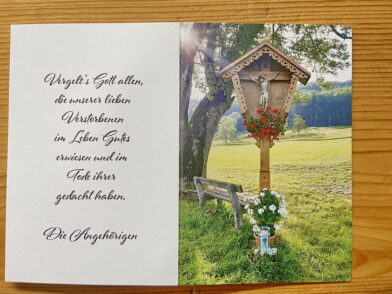 Vergelt's Gott allen,
die unserer lieben
Verstorbenen
im Leben Gutes
erwiesen und im
Tode ihrer
gedacht haben.
Die Angehörigen